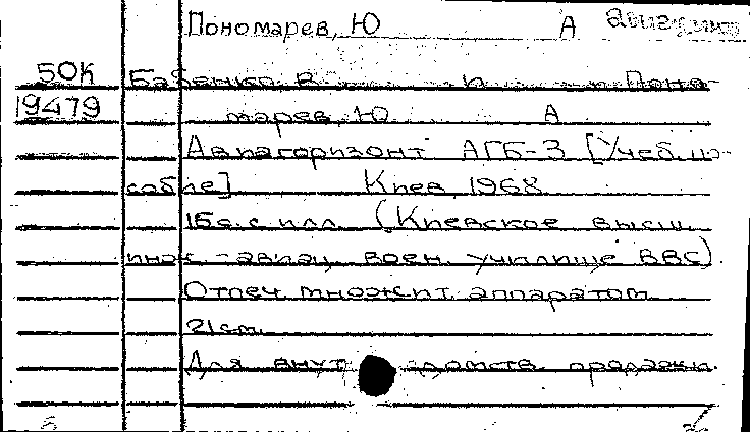 Пономарев, Ю А
50К Бабенко В. И. и Поно-
19479 марев, Ю А
Авиагоризонт АГБ-3 [Учеб. по-
собие] Киев, 1968
15с. с илл. (Киевское высш.
инж.-авиац. воен. училище ВВС).
Отпеч. множит. аппаратом
21см.
Для внут продажи